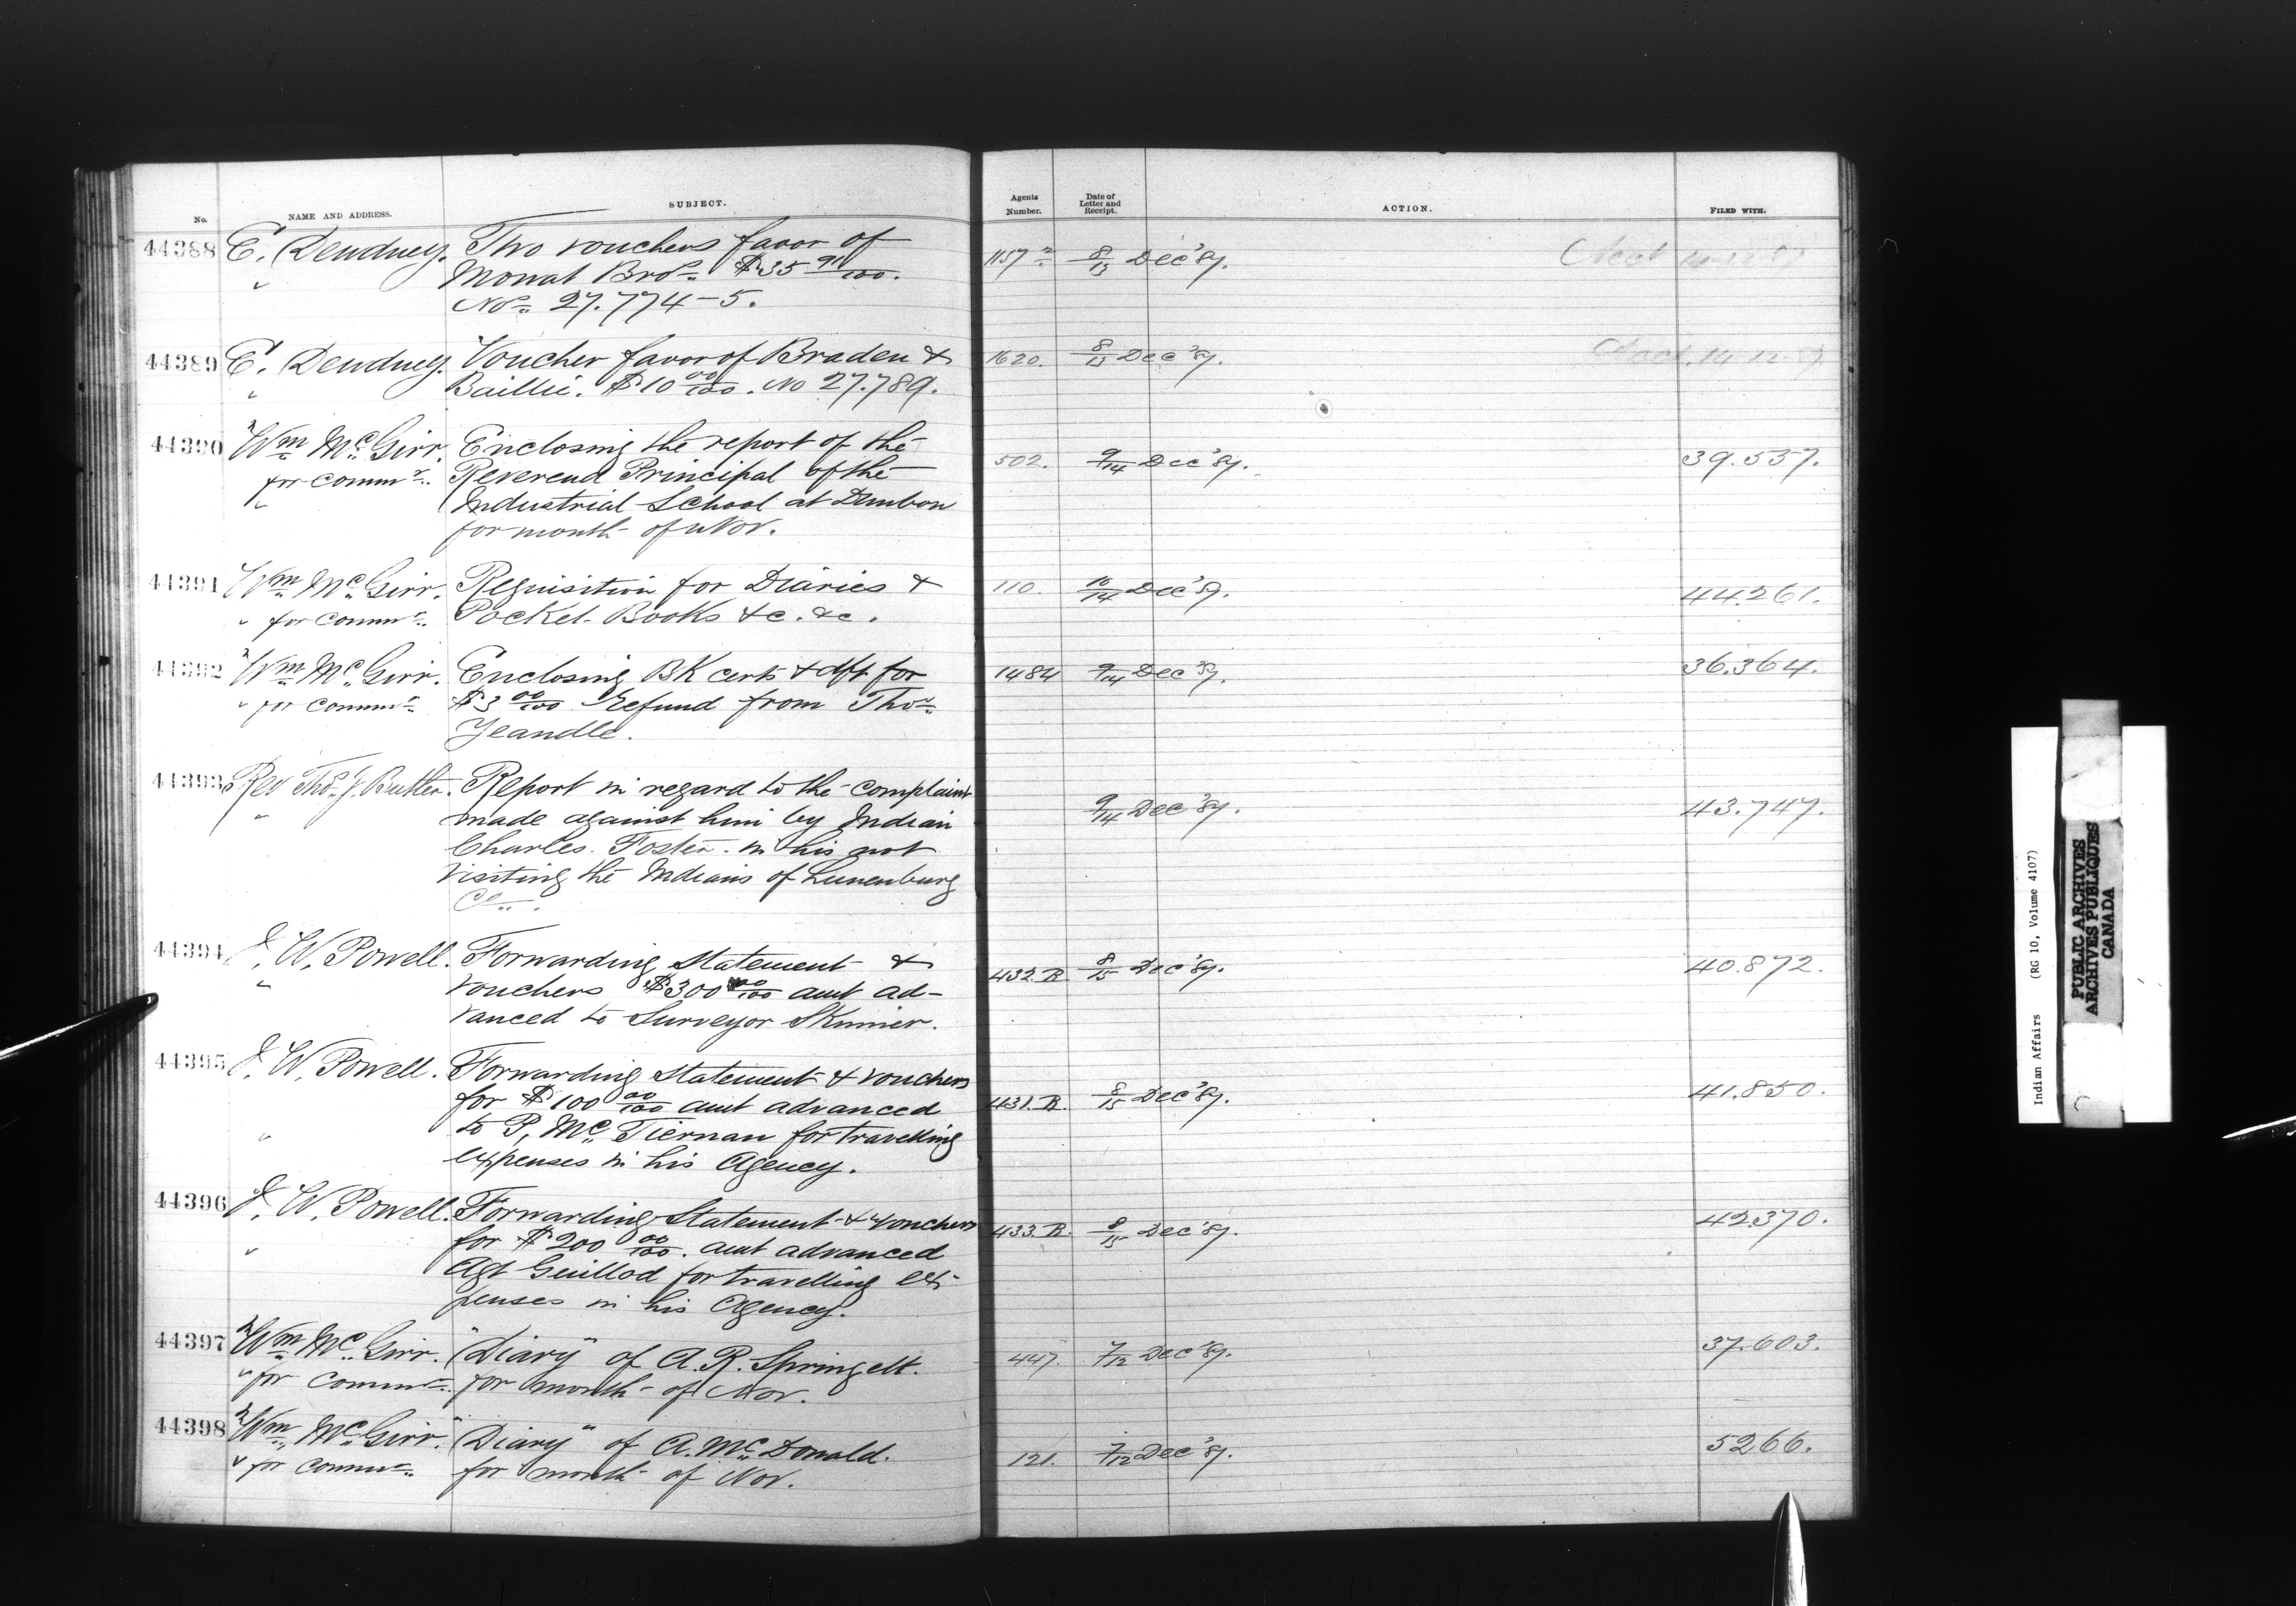 No. NAME AND ADDRESS. SUBJECT. Agents Number. Date of Letter and Receipt. ACTION. FILED WITH.
44388 E. Dewdney. Two vouchers favor of 1157 8/13 Dec '87.
" Mowat Bros. $35 91/100.
Nos. 27.774-5.
44389 E. Dewdney. Voucher favor of Braden & 1620. 8/13 Dec '87. 14-12-87
" Baillie. $10 00/100. No 27.789.
44390 Wm McGirr. Enclosing the report of the 502. 9/14 Dec '87. 39.537.
for Commr. Reverend Principal of the
" Industrial School at Dunbow
for month of Nov.
44391 Wm McGirr. Requisition for Diaries & 110. 10/14 Dec '87. 44.261.
" for Commr. Pocket Books &c. &c.
44392 Wm McGirr. Enclosing BK cert & dft for 1484 9/14 Dec '87. 36.364.
" for Commr $3 00/100 Refund from Thos.
Jeandle.
44393 Rev Thos. J. Butler. Report in regard to the complaint 9/14 Dec '87. 43.747.
" made against him by Indian
Charles Foster in his not
visiting the Indians of Lunenburg
Co.
44394 J. W. Powell. Forwarding Statement & 432.R 8/15 Dec '87. 40.872.
" vouchers $300 00/100 amt ad-
vanced to Surveyor Skinner.
44395 J. W. Powell. Forwarding Statement & vouchers 431.R. 8/15 Dec '87. 41.850.
for $100 00/100 amt advanced
" to P. McTiernan for travelling
expenses in his Agency.
44396 J. W. Powell. Forwarding Statement & vouchers 433.R. 8/15 Dec '87. 42370.
" for $200 00/100. amt advanced
Agt Guillod for travelling ex-
penses in his Agency.
44397 Wm McGirr. "Diary" of A. R. Springett. 447. 7/12 Dec '87. 37.603.
" for Commr. for month of Nov.
44398 Wm McGirr. "Diary" of A. McDonald. 121. 7/12 Dec '87. 5266.
" for Commr. for month of Nov.
Indian Affairs (RG 10, Volume 4107)
PUBLIC ARCHIVES
ARCHIVES PUBLIQUES
CANADA